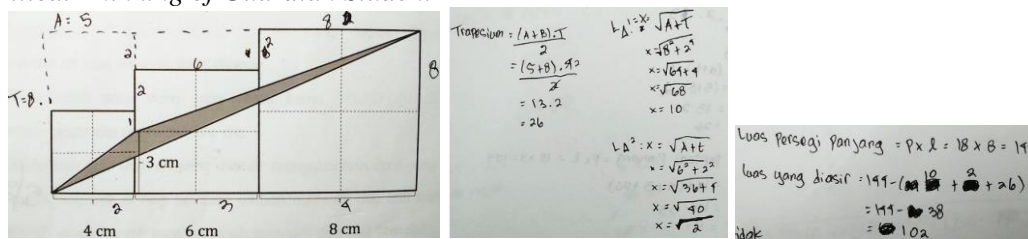 A = 5
8
2
6
2
2
8
T=8
1
3 cm
2
4
4 cm
6 cm
8 cm
Trapesium = (A+B).T
2
= (5+8).
2
= 13.2
= 26
LΔ¹: x = √A+T
x = √8² + 2²
x = √64+4
x = √68
x = 10
LΔ²: x = √A+t
x = √6² + 2²
x = √36+4
x = √40
x = √2
Luas Persegi Panjang = P x l = 18 x 8 = 14
luas yang diasir = 144 - ( 10 + 2 + 26)
= 144 - 38
= 102
idak